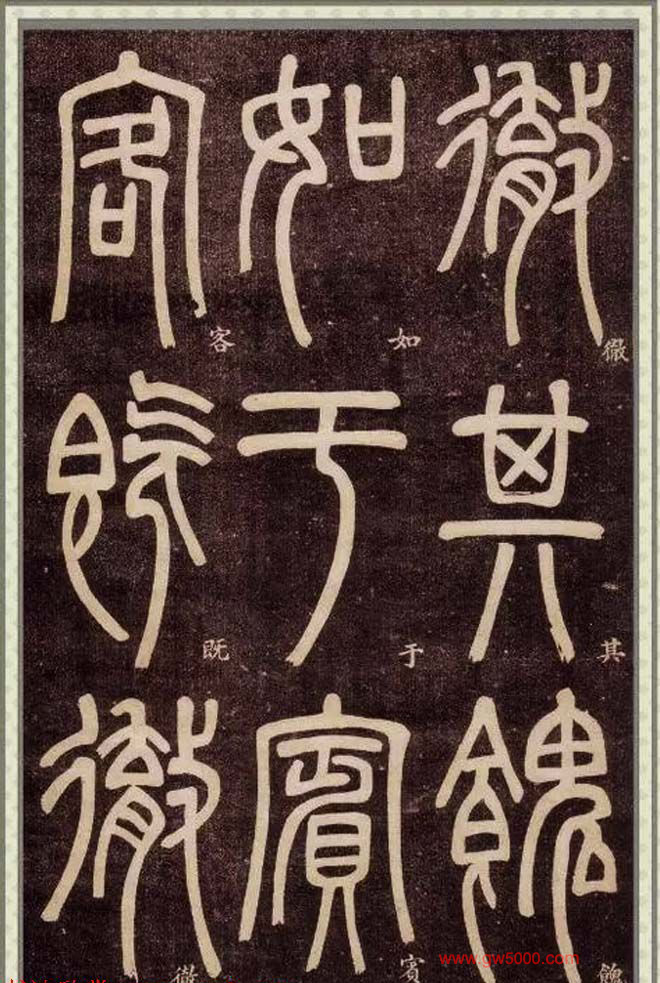 徹其餽
徹其餽
如于賓
如于賓
客既徹
客既徹
www.gw5000.com